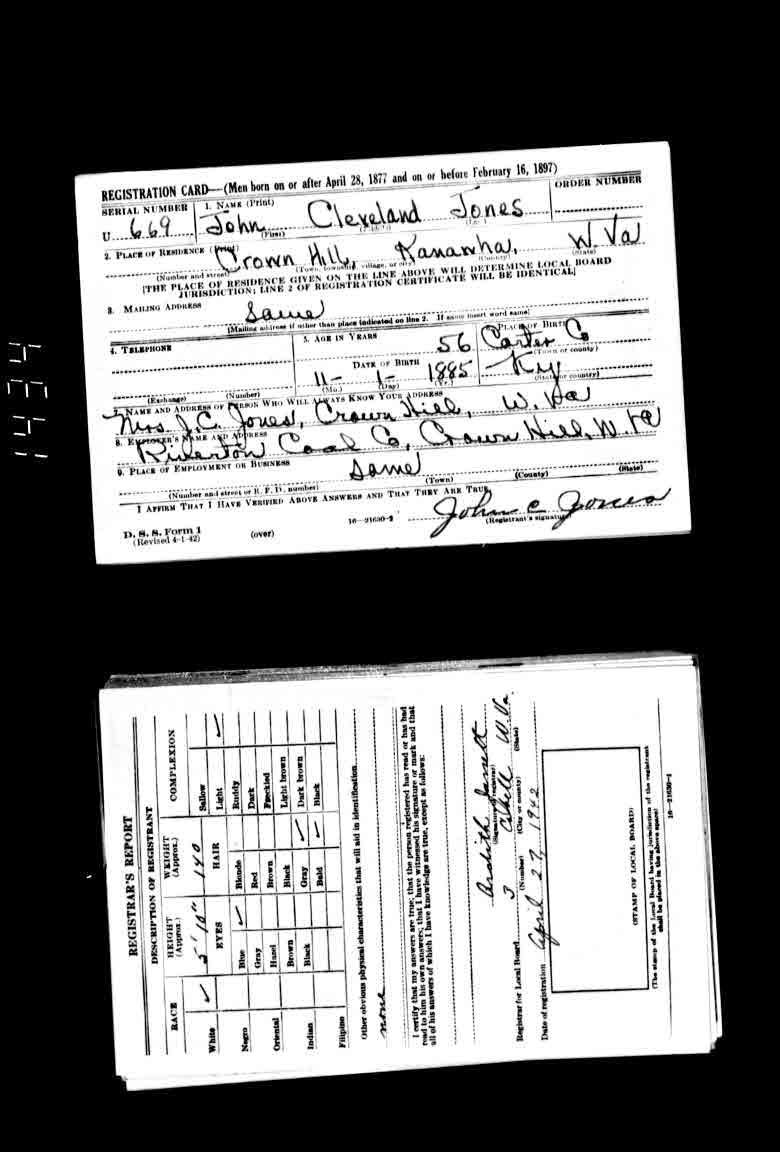 REGISTRATION CARD—(Men born on or after April 28, 1877 and on or before February 16, 1897)
SERIAL NUMBER 1. NAME (Print) ORDER NUMBER
U 669 John Cleveland Jones
(First) (Last)
2. PLACE OF RESIDENCE (Print)
Crown Hill, Kanawha, W. Va
(Number and street) (Town, township, village, or city) (County) (State)
[THE PLACE OF RESIDENCE GIVEN ON THE LINE ABOVE WILL DETERMINE LOCAL BOARD
JURISDICTION; LINE 2 OF REGISTRATION CERTIFICATE WILL BE IDENTICAL]
3. MAILING ADDRESS
Same
[Mailing address if other than place indicated on line 2. If same insert word same]
4. TELEPHONE 5. AGE IN YEARS PLACE OF BIRTH
56 Carter Co
(Town or county)
DATE OF BIRTH
11- 1- 1885 Ky
(Exchange) (Number) (Mo.) (Day) (Yr.) (State or country)
7. NAME AND ADDRESS OF PERSON WHO WILL ALWAYS KNOW YOUR ADDRESS
Mrs. J.C. Jones, Crown Hill, W. Va
8. EMPLOYER'S NAME AND ADDRESS
Riverton Coal Co, Crown Hill, W. Va
9. PLACE OF EMPLOYMENT OR BUSINESS
Same
(Number and street or R. F. D. number) (Town) (County) (State)
I AFFIRM THAT I HAVE VERIFIED ABOVE ANSWERS AND THAT THEY ARE TRUE.
John C Jones
D. S. S. Form 1 (over) 16—21630-2 (Registrant's signature)
(Revised 4-1-42)
1434
REGISTRAR'S REPORT
DESCRIPTION OF REGISTRANT
RACE HEIGHT (Approx.) WEIGHT (Approx.) COMPLEXION
White ✓ 5' 10" 140 Sallow
EYES HAIR Light ✓
Negro Blue ✓ Blonde Ruddy
Gray Red Dark
Oriental Hazel Brown Freckled
Brown Black Light brown
Indian Black Gray ✓ Dark brown
Bald ✓ Black
Filipino
Other obvious physical characteristics that will aid in identification
none
I certify that my answers are true; that the person registered has read or has had
read to him his own answers; that I have witnessed his signature or mark and that
all of his answers of which I have knowledge are true, except as follows:
(Signature of registrar)
Registrar for Local Board 3 Cabell W. Va.
(Number) (City or county) (State)
Date of registration April 27, 1942
(STAMP OF LOCAL BOARD)
(The stamp of the Local Board having jurisdiction of the registrant
shall be placed in the above space)
16—21630-1